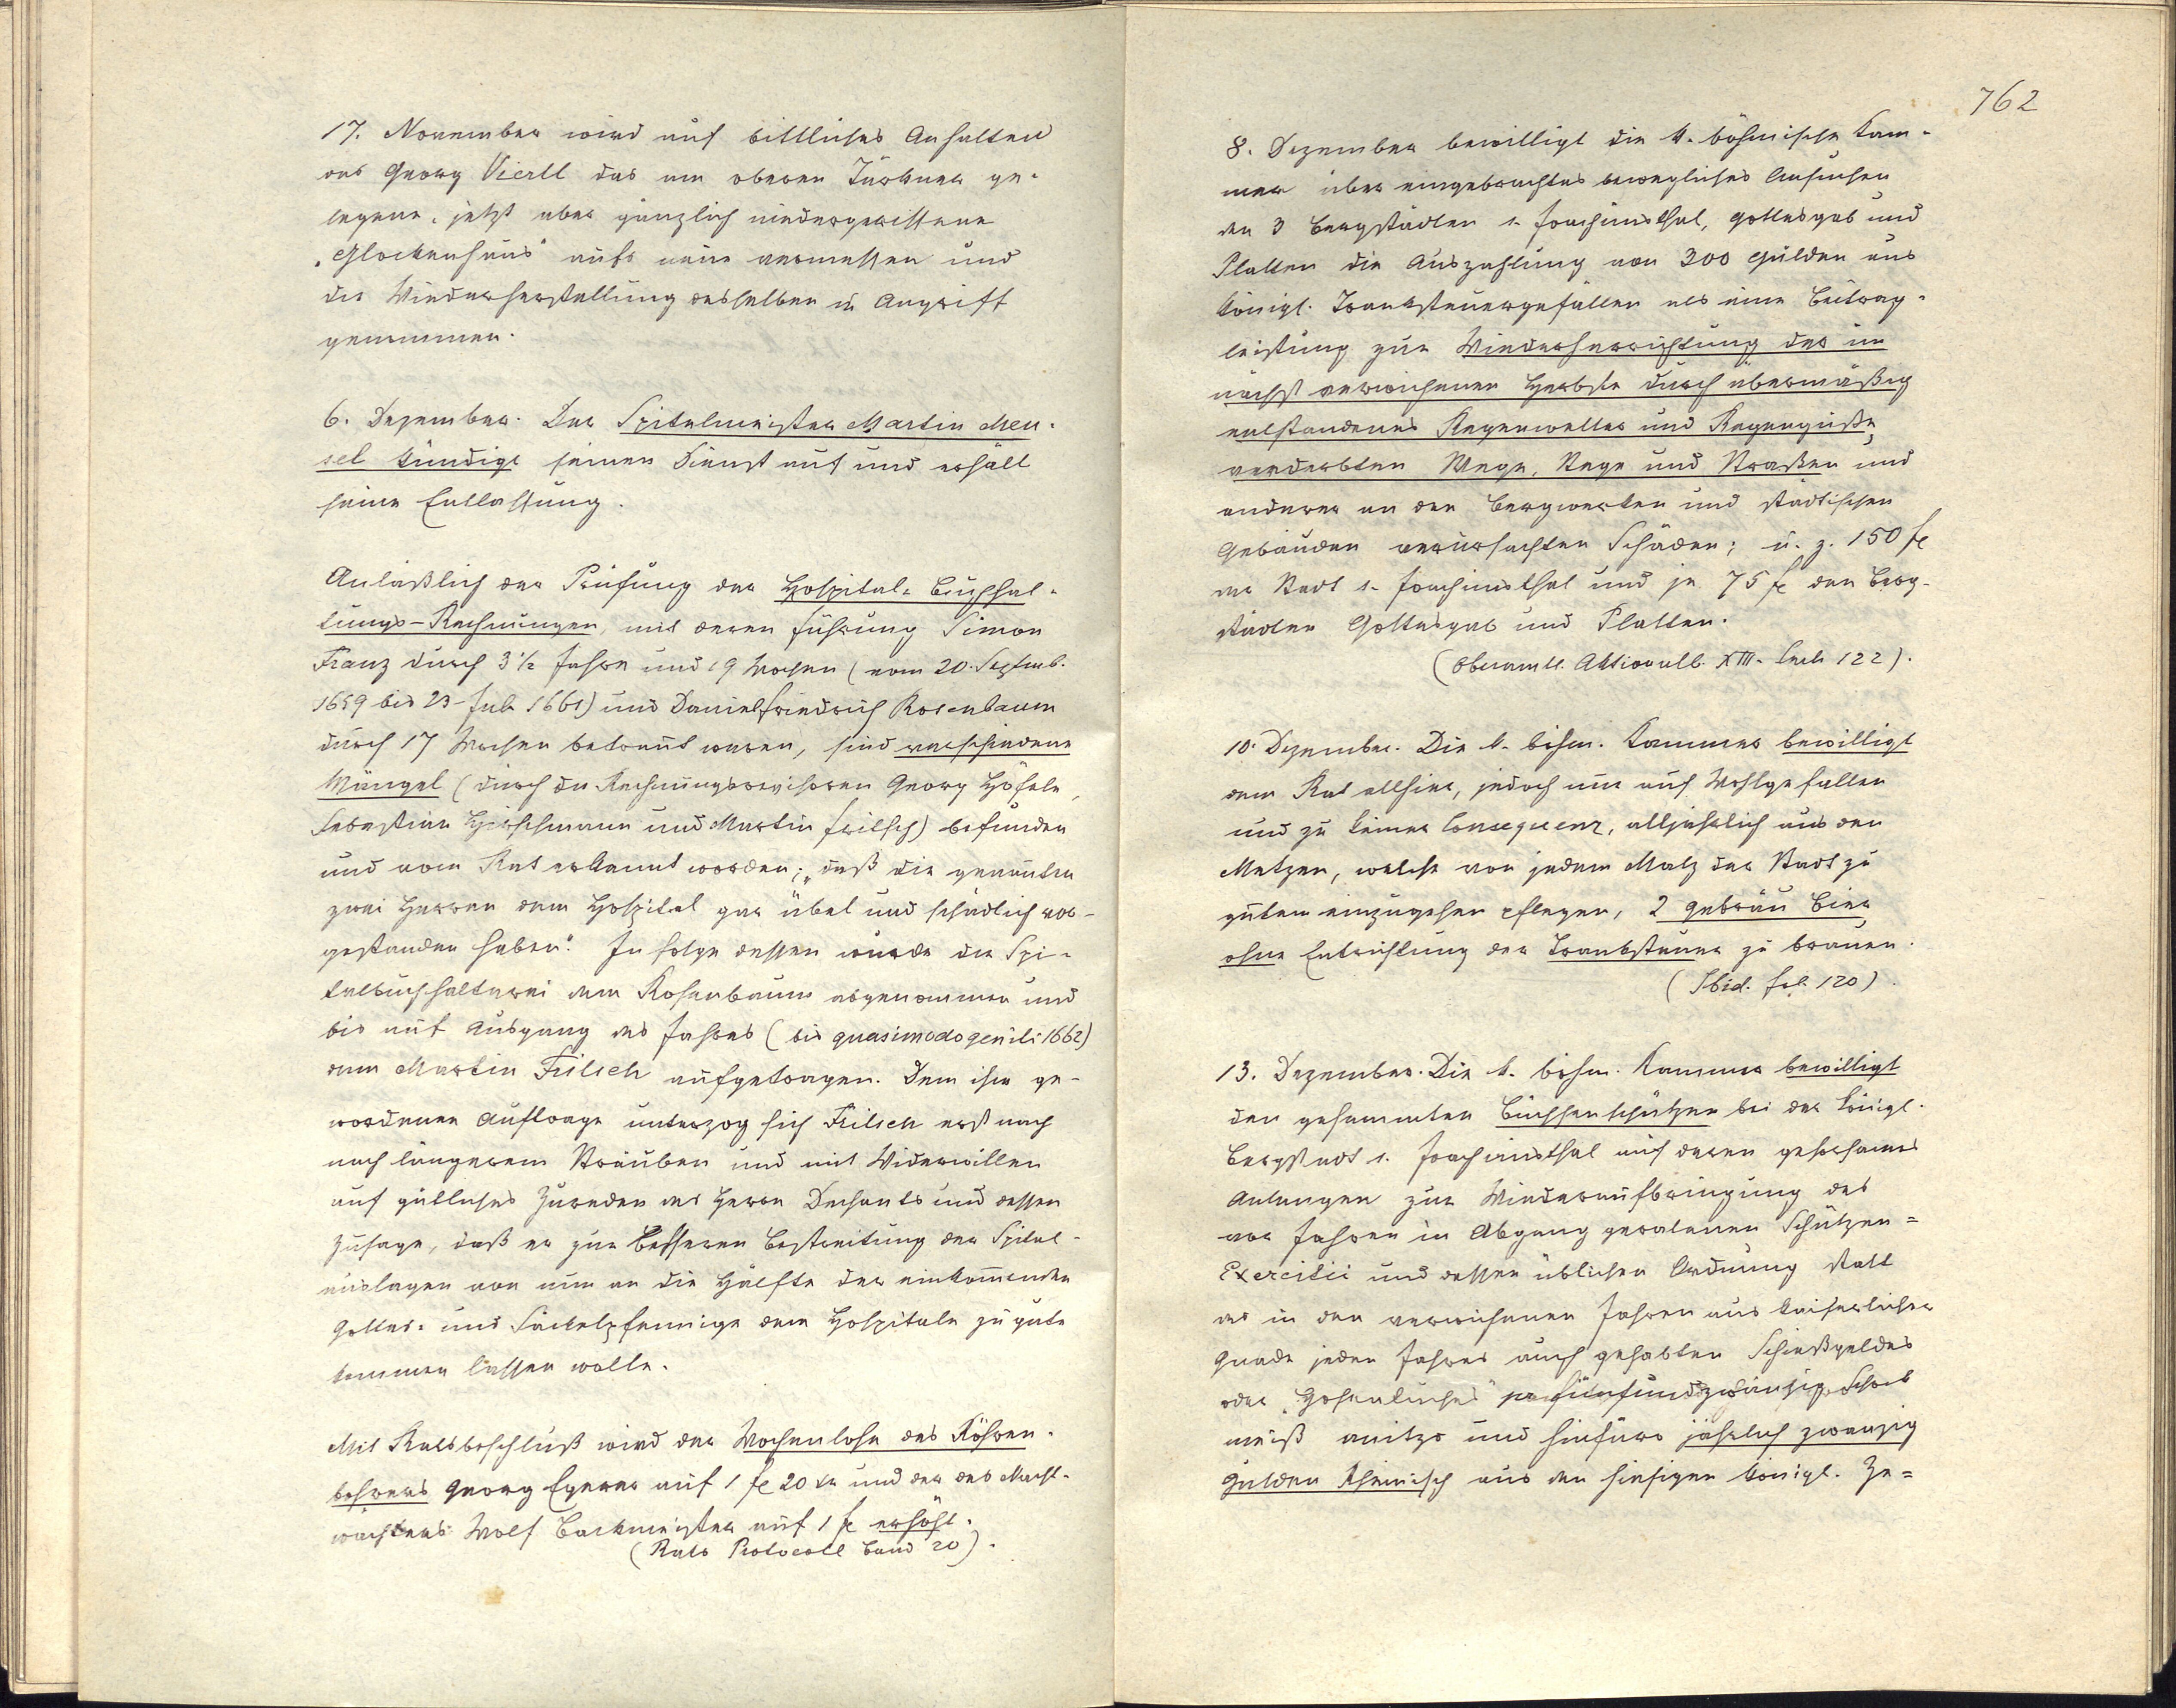 17. November wird auf bittliches Anhalten
des Georg Viertl das am oberen Türkner ge-
legene, jetzt aber gänzlich niedergerissene
„Glockenhaus" aufs neue vermessen und
die Wiederherstellung desselben in Angriff
genommen.
6. Dezember. Der Spitelmeister Martin Men-
sel kündigt seinen Dienst auf und erhält
seine Entlassung.
Anläßlich der Prüfung der Hospital-Buchhal-
tungs-Rechnungen, mit deren Führung Simon
Franz durch 3 ½ Jahre und 19 Wochen (vom 20. Septemb.
1659 bis 23. Juli 1661) und Daniel Friedrich Rosenbaum
durch 17 Wochen betraut waren, sind verschiedene
Mängel (durch die Rechnungsrevisoren Georg Höfele,
Sebastian Hirschmann und Martin Fritsch) befunden
und vom Rat erkannt worden; „daß die genannten
zwei Herren dem Hospital gar übel und schädlich vor-
gestanden haben." In folge dessen wurde die Spi-
talbuchhalterei dem Rosenbaum abgenommen und
bis auf Ausgang des Jahres (bis quasimodogeniti 1662)
dem Martin Fritsch aufgetragen. Dem ihm ge-
wordenen Auftrage unterzog sich Fritsch erst nach
nach längerem Sträuben und mit Widerwillen
auf gütliches Zureden des Herrn Dechants und dessen
Zusage, daß er zur besseren Bestreitung der Spital-
auslagen von nun an die Hälfte der einkommenden
Gottes- und Säckelpfennige dem Hospitale zu gute
kommen lassen wolle.
Mit Ratsbeschluß wird der Wochenlohn des Röhren-
bohrers Georg Egerer auf 1 fl 20 kr und der des Nacht-
wächters Wolf Backmeister auf 1 fl erhöht.
(Rats Protocoll Band 20).
762
8. Dezember bewilligt die k. böhmische Kam-
mer über eingebrachtes bewegliches Ansuchen
den 3 Bergstädten s. Joachimsthal, Gottesgab und
Platten die Auszahlung von 300 Gulden aus
königl. Tranksteuergefällen als eine Beitrag-
leistung zur Wiederherrichtung der im
nächst verwichenen Herbste durch übermäßig
entstandenes Regenwetter und Regengüsse
verderbten Wege, Stege und Straßen und
anderer an den Bergwerken und städtischen
Gebäuden verursachten Schäden; u. z. 150 fl
der Stadt s. Joachimsthal und je 75 fl den Berg-
städten Gottesgab und Platten.
(Oberamtl. Aktionalb. XIII. Seite 122).
10. Dezember. Die k. böhm. Kammer bewilligt
dem Rat allhier, jedoch nur auf Wohlgefallen
und zu keiner Consequenz, alljährlich aus den
Metzen, welche von jedem Malz der Stadt zu
gutem einzugehen pflegen, 2 Gebräu Bier
ohne Entrichtung der Tranksteuer zu brauen.
(Ibid. fol. 120).
13. Dezember. Die k. böhm. Kammer bewilligt
den gesammten Büchsenschützen bei der königl.
Bergstadt s. Joachimsthal auf deren gehorsames
Anlangen zur Wiederaufbringung des
vor Jahren in Abgang geratenen Schützen=
Exercitii und dessen üblichen Ordnung statt
des in den verwichenen Jahren aus kaiserlicher
Gnade jeden Jahres auch gehabten Schießgeldes
oder „Hosentuches" per fünfundzwanzig Schock
meiß anitzo und hinfüro jährlich zwanzig
Gulden Rheinisch aus den hiesigen königl. Ze=